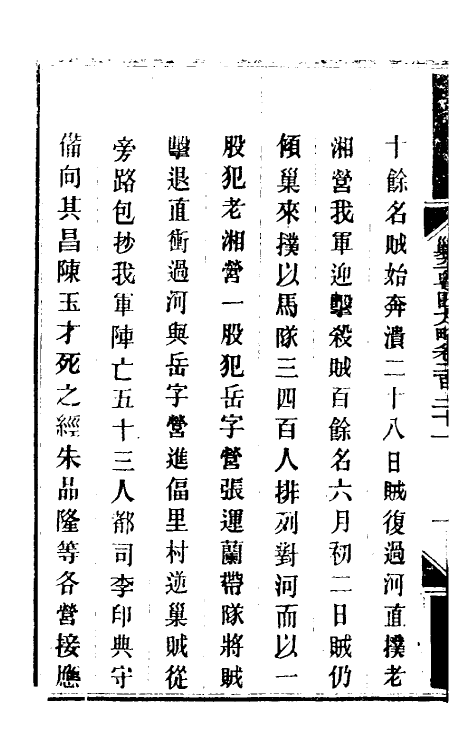 十餘名賊始奔潰二十八日賊復過河直撲老
湘營我軍迎擊殺賊百餘名六月初二日賊仍
傾巢來撲以馬隊三四百人排列對河而以一
股犯老湘營一股犯岳字營張運蘭帶隊將賊
擊退直衝過河與岳字營進偪里村逆巢賊從
旁路包抄我軍陣亡五十三人都司李印典守
備向其昌陳玉才死之經朱品隆等各營接應